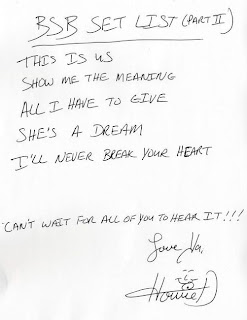 BSB SET LIST (PART II)
THIS IS US
SHOW ME THE MEANING
ALL I HAVE TO GIVE
SHE'S A DREAM
I'LL NEVER BREAK YOUR HEART
CAN'T WAIT FOR ALL OF YOU TO HEAR IT!!!
Love Ya,
Howie D